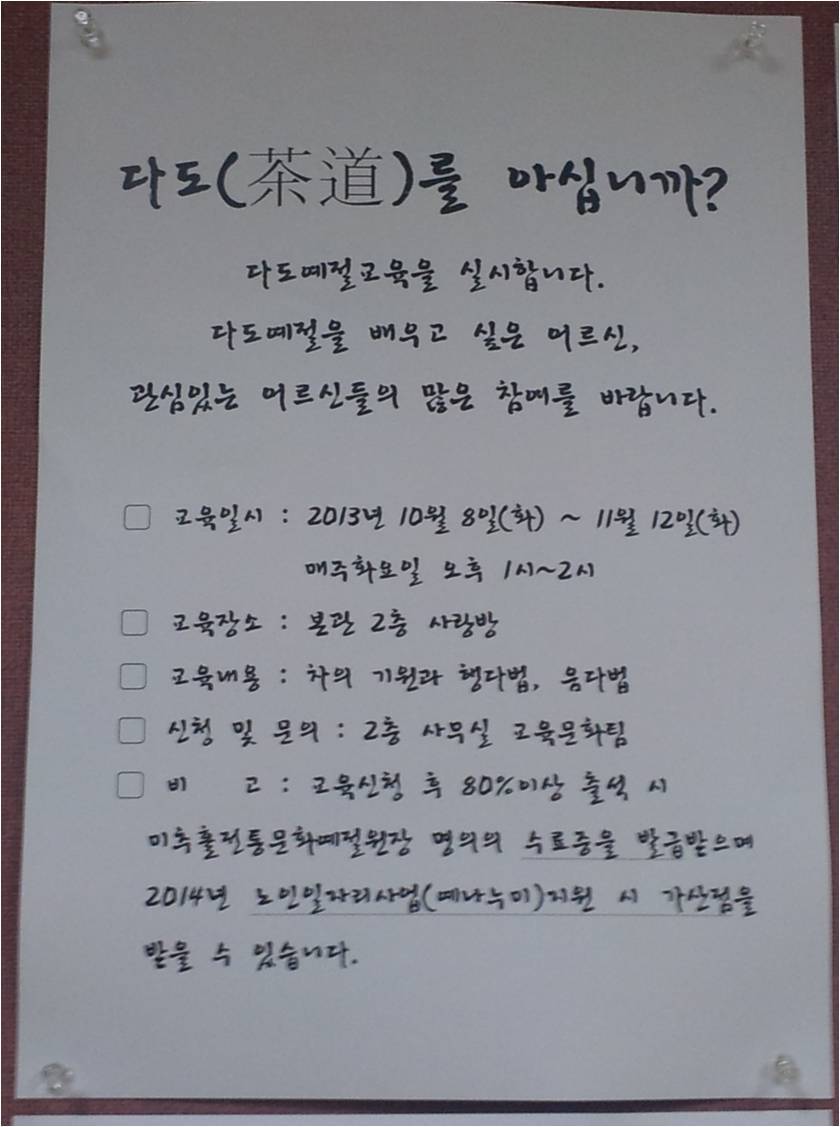 다도(茶道)를 아십니까?
다도예절교육을 실시합니다.
다도예절을 배우고 싶은 어르신,
관심있는 어르신들의 많은 참여를 바랍니다.
□ 교육일시 : 2013년 10월 8일(화) ~ 11월 12일(화)
매주화요일 오후 1시~2시
□ 교육장소 : 본관 2층 사랑방
□ 교육내용 : 차의 기원과 행다법, 음다법
□ 신청 및 문의 : 2층 사무실 교육문화팀
□ 비 고 : 교육신청 후 80%이상 출석 시
미추홀전통문화예절원장 명의의 수료증을 발급받으며
2014년 노인일자리사업(예나누미)지원 시 가산점을
받을 수 있습니다.